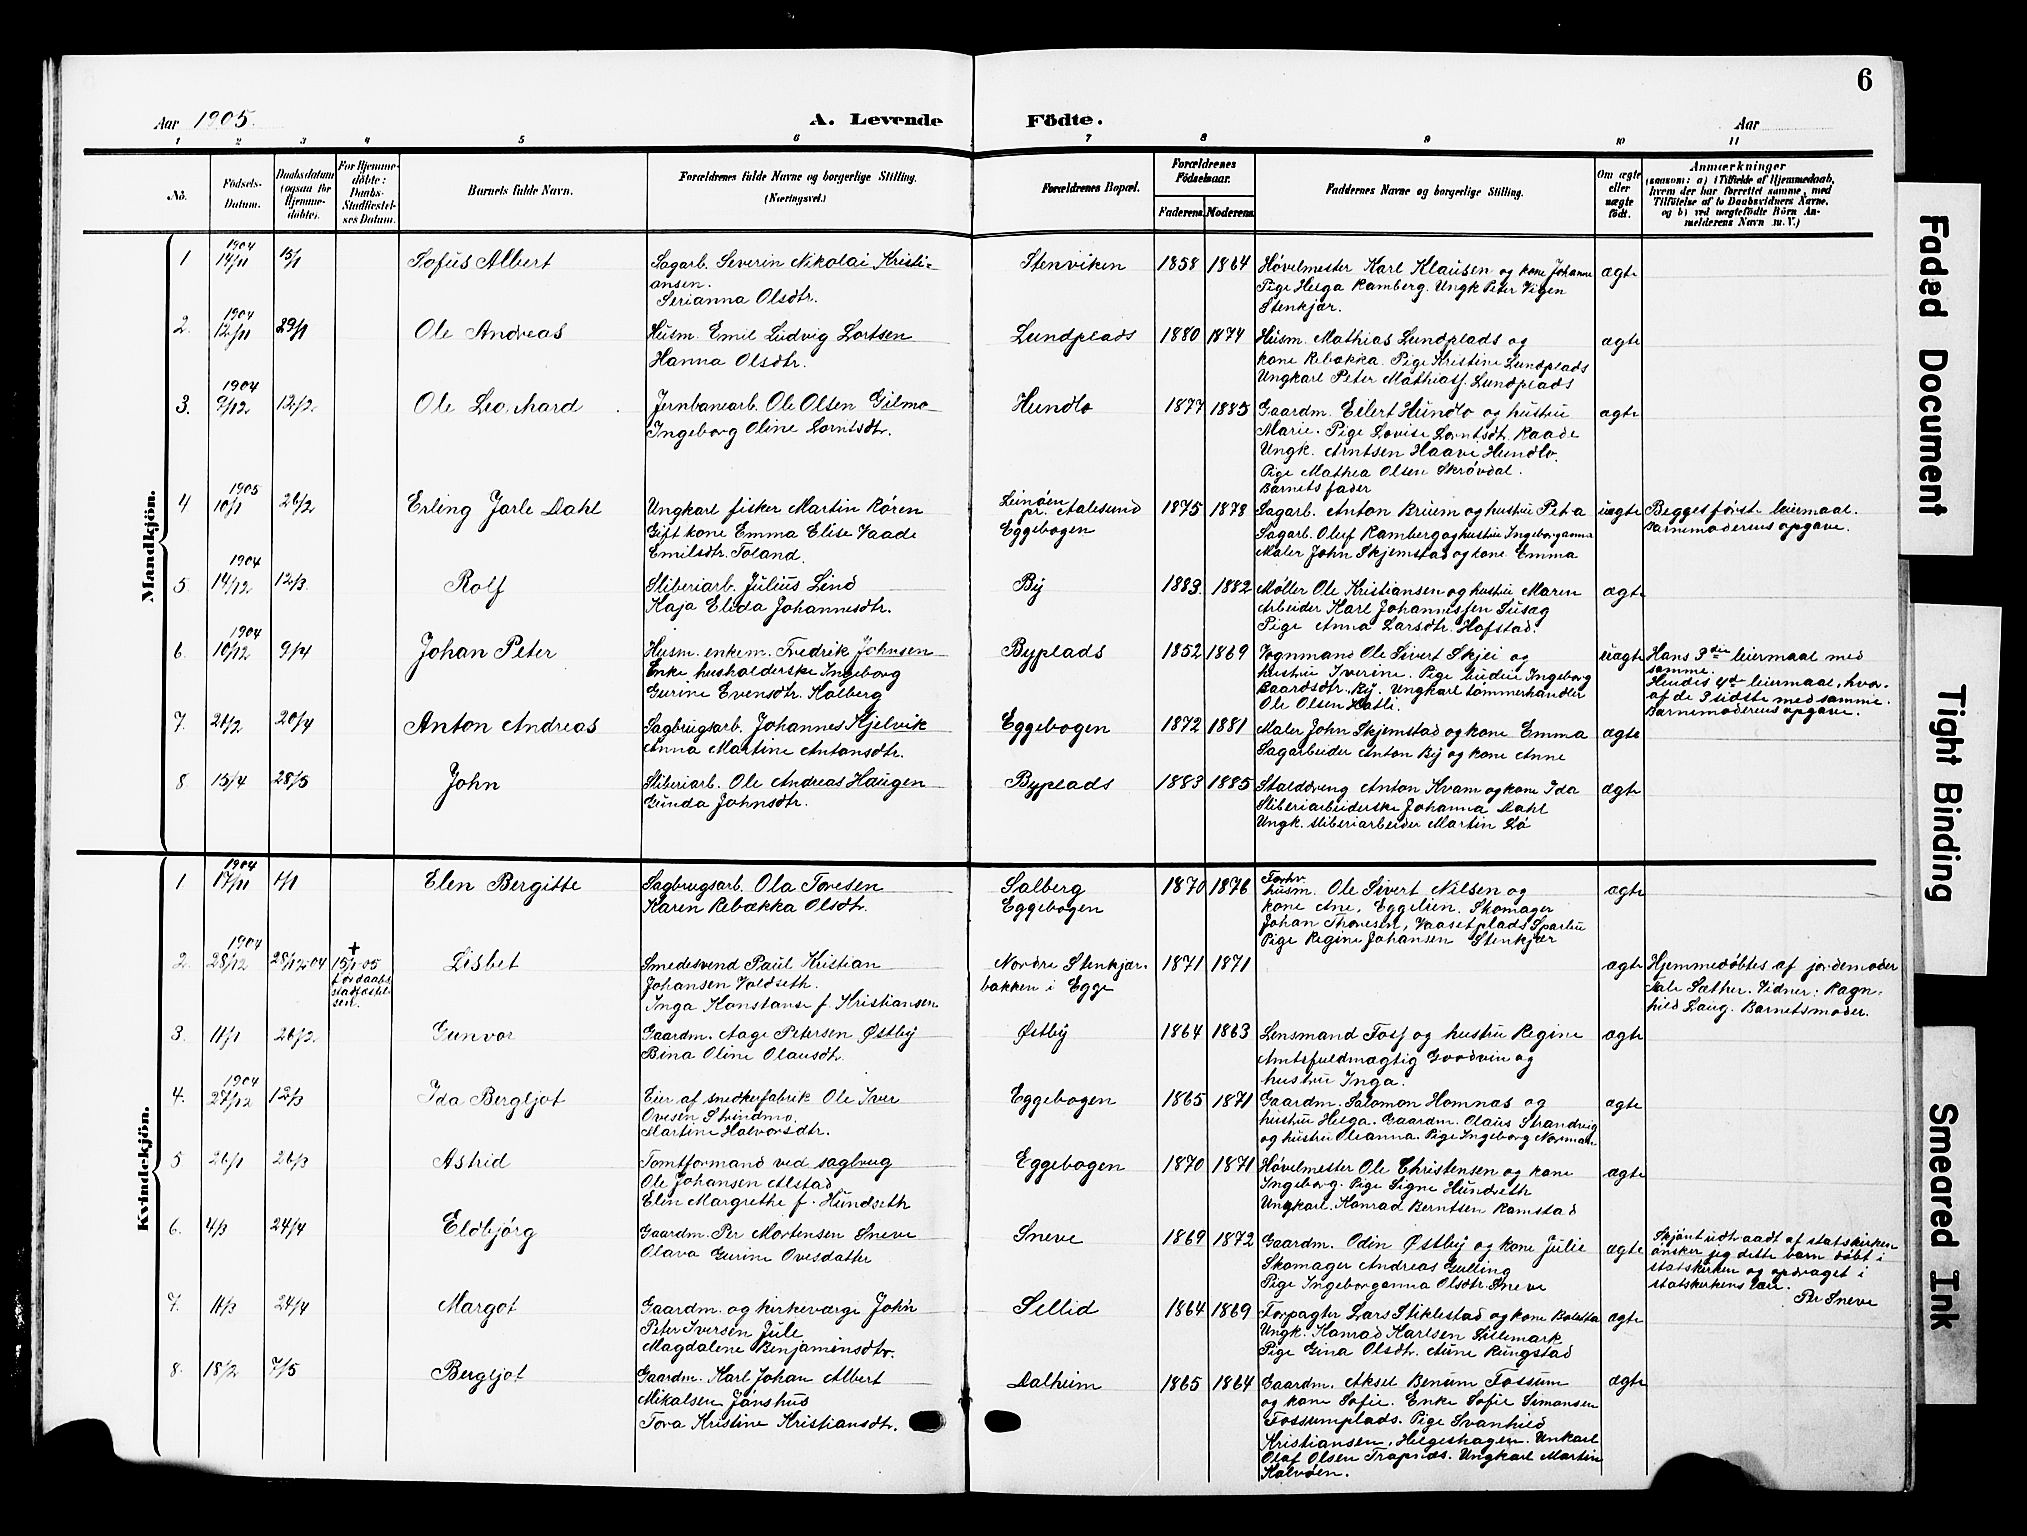 6
Aar 1905.
A. Levende Födte.
Aar
1 2 3 4 5 6 7 8 9 10 11
No.
Födsels-
Datum.
Daabsdatum
(ogsaa for
Hjemme-
döbte).
For Hjemme-
döbte:
Daabs-
Stadfæstel-
ses Datum.
Barnets fulde Navn.
Forældrenes fulde Navne og borgerlige Stilling.
(Næringsvei.)
Forældrenes Bopæl.
Forældrenes
Födselsaar.
Faderens. Moderens.
Faddernes Navne og borgerlige Stilling.
Om ægte
eller
uægte
födt.
Anmærkninger
(saasom: a) i Tilfælde af Hjemmedaab,
hvem der har forrettet samme, med
Tilföielse af to Daabsvidners Navne,
og b) ved uægtefödte Börn An-
melderens Navn m. V.)
Mandkjön.
1
1904
14/11
15/1
Sofus Albert
Sagarb. Severin Nikolai Kristi-
ansen.
Serianna Olsdtr.
Stenviken
1858 1864
Høvelmester Karl Klausen og kone Johanne
Pige Helga Ramberg. Ungk Peter Vigen
Stenkjær.
ægte
2.
1904
12/11
29/1
Ole Andreas
Husm. Emil Ludvig Lortsen
Hanna Olsdtr.
Lundplads
1880 1874
Husm. Mathias Lundplads og
kone Rebækka. Pige Kristine Lundplads
Ungkarl Peter Mathiasf. Lundplads
ægte
3.
1904
9/12
12/2
Ole Leonhard
Jernbanearb. Ole Olsen Gilmo
Ingeborg Oline Lorntsdtr.
Hundlo
1877 1885
Gaardm. Eilert Hundlo og hustru
Marie. Pige Lovise Lorntsdtr. Raade
Ungk. Arntsen Haave Hundlo.
Pige Mathea Olsen Skrøvdal.
Barnets fader
ægte
4
1905
10/1
26/2
Erling Jarle Dahl
Ungkarl fisker Martin Røren
Gift kone Emma Elise Vaade
Emilsdtr. Foland.
Leinøen
pr. Aalesund
Eggebogen
1875 1878
Sagarb. Anton Bruem og hustru Peta
Sagarb. Oluf Ramberg og hustru Ingeborganna
Maler John Skjemstad og kone Emma
uægte
Begges første leiermaal.
Barnemoderens opgave.
5
1904
14/12
12/3
Rolf
Sliberiarb. Julius Lind
Kaja Elida Johannesdtr.
By
1883 1882
Møller Ole Kristiansen og hustru Maren
Arbeider Karl Johannessen Susag
Pige Anna Larsdtr. Hofstad.
ægte
6.
1904
10/12
9/4
Johan Peter
Husm. enkem. Fredrik Johnsen
Enke husholderske Ingeborg
Gurine Evensdtr. Holberg
Byplads
1852 1869
Vognmand Ole Sivert Skjei og
hustru Iverine. Pige budeie Ingeborg
Baardsdtr. By. Ungkarl tømmerhandler
Ole Olsen Latli.
uægte
Hans 3die leiermaal med
samme.
Hendes 4de leiermaal, hvor-
af de 3 sidste med samme.
Barnemoderens opgave.
7.
21/2
20/4
Anton Andreas
Sagbrugsarb. Johannes Hjelvik
Anna Martine Antonsdtr.
Eggebogen
1872 1881
Maler John Skjemstad og kone Emma
Sagarbeider Anton By og kone Anne
ægte
8
15/4
28/5
John
Sliberiarb. Ole Andreas Haugen
Gunda Johnsdtr.
Byplads
1883 1885
Stalddreng Anton Kvam og kone Ida
Sliberiarbeiderske Johanna Dahl
Ungk. sliberiarbeider Martin Lø
ægte
Kvindekjön.
1
1904
17/11
1/1
Elen Bergitte
Sagbrugsarb. Ola Toresen
Karen Rebækka Olsdtr.
Salberg
Eggebogen
1870 1876
Forhv.
husm. Ole Sivert Nilsen og
kone Ane, Eggelien. Skomager
Johan Thoresen, Vaasetplads Sparbu
Pige Regine Johansen Stenkjær
ægte
2.
1904
28/12
28/12 04
+
15/1 05
før daabs-
stadfæstel-
sen.
Lisbet
Smedesvend Paul Kristian
Johansen Voldseth.
Inga Konstanse f. Kristiansen
Nordre Stenkjær-
bakken i Egge
1871 1871
ægte
Hjemmedøbtes af jordemoder
Tale Sæther. Vidner: Ragn-
hild Laug. Barnetsmoder.
3.
11/1
26/2
Gunvor
Gaardm. Aage Petersen Østby
Bina Oline Olausdtr.
Østby
1864 1863
Lensmand Foss og hustru Regine
Amtsfuldmægtig Goodvin og
hustru Inga.
ægte
4.
1904
27/12
12/3
Ida Bergljot
Eier af snedkerfabrik Ole Iver
Ovesen Strindmo.
Martine Halvorsdtr.
Eggebogen
1865 1871
Gaardm. Salomon Homnas og
hustru Helga. Gaardm. Olaus Strandvig
og hustru Oleanna. Pige Ingeborg Norman.
ægte
5
26/1
26/3
Astrid
Tomtformand ved sagbrug
Ole Johansen Alstad
Elen Margrethe f. Hundseth
Eggebogen
1870 1871
Høvelmester Ole Christensen og kone
Ingeborg. Pige Signe Hundseth
Ungkarl Konrad Berntsen Ramstad
ægte
6.
4/3
24/4
Eldbjørg
Gaardm. Per Mortensen Sneve
Olava Gurine Ovesdatter
Sneve
1869 1872
Gaardm. Odin Østby og kone Julie
Skomager Andreas Gulling
Pige Ingeborganna Olsdtr. Sneve
ægte
Skjønt udtraadt af statskirken
ønsker jeg dette barn døbt i
statskirken og opdraget i
statskirkens lære.
Per Sneve
7.
11/3
24/4
Margot
Gaardm. og kirkeværge John
Peter Iversen Jule
Magdalene Benjaminsdtr.
Sellid
1864 1869
Forpagter Lars Stiklestad og kone Boletta
Ungk. Konrad Karlsen Sillemark
Pige Gina Olsdtr. Aune Rungstad
ægte
8.
18/2
7/5
Bergljot
Gaardm. Karl Johan Albert
Mikalsen Jønshus
Tora Kristine Kristiansdtr.
Dalheim
1865 1864
Gaardm. Aksel Benum Fossum
og kone Sofie. Enke Sofie Simonsen
Fossumplads. Pige Svanhild
Kristiansen, Helgeshagen. Unkarl
Olaf Olsen Trapnæs. Ungkarl Martin
Halvøen.
ægte
Faded Document
Tight Binding
Smeared Ink